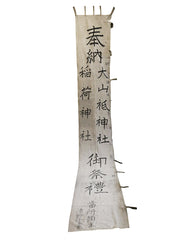 奉納
大山祇神社
稲荷神社
御祭禮